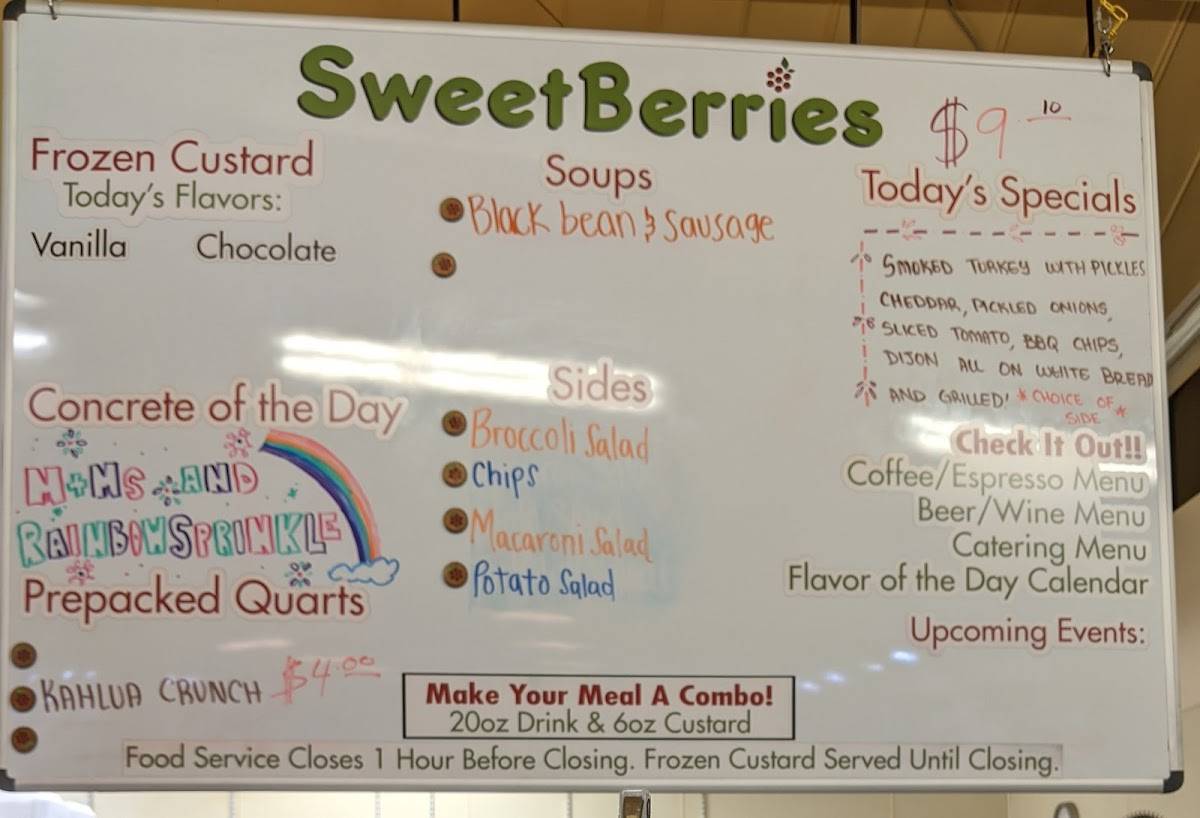 SweetBerries
Frozen Custard
Today's Flavors:
Vanilla Chocolate
Concrete of the Day
M+Ms AND
RAINBOW SPRINKLE
Prepacked Quarts
KAHLUA CRUNCH $4.00
Soups
Black bean & Sausage
Sides
Broccoli Salad
Chips
Macaroni Salad
Potato Salad
$9.10
Today's Specials
SMOKED TURKEY WITH PICKLES
CHEDDAR, PICKLED ONIONS,
SLICED TOMATO, BBQ CHIPS,
DIJON ALL ON WHITE BREAD
AND GRILLED! * CHOICE OF
SIDE *
Check It Out!!
Coffee/Espresso Menu
Beer/Wine Menu
Catering Menu
Flavor of the Day Calendar
Upcoming Events:
Make Your Meal A Combo!
20oz Drink & 6oz Custard
Food Service Closes 1 Hour Before Closing. Frozen Custard Served Until Closing.